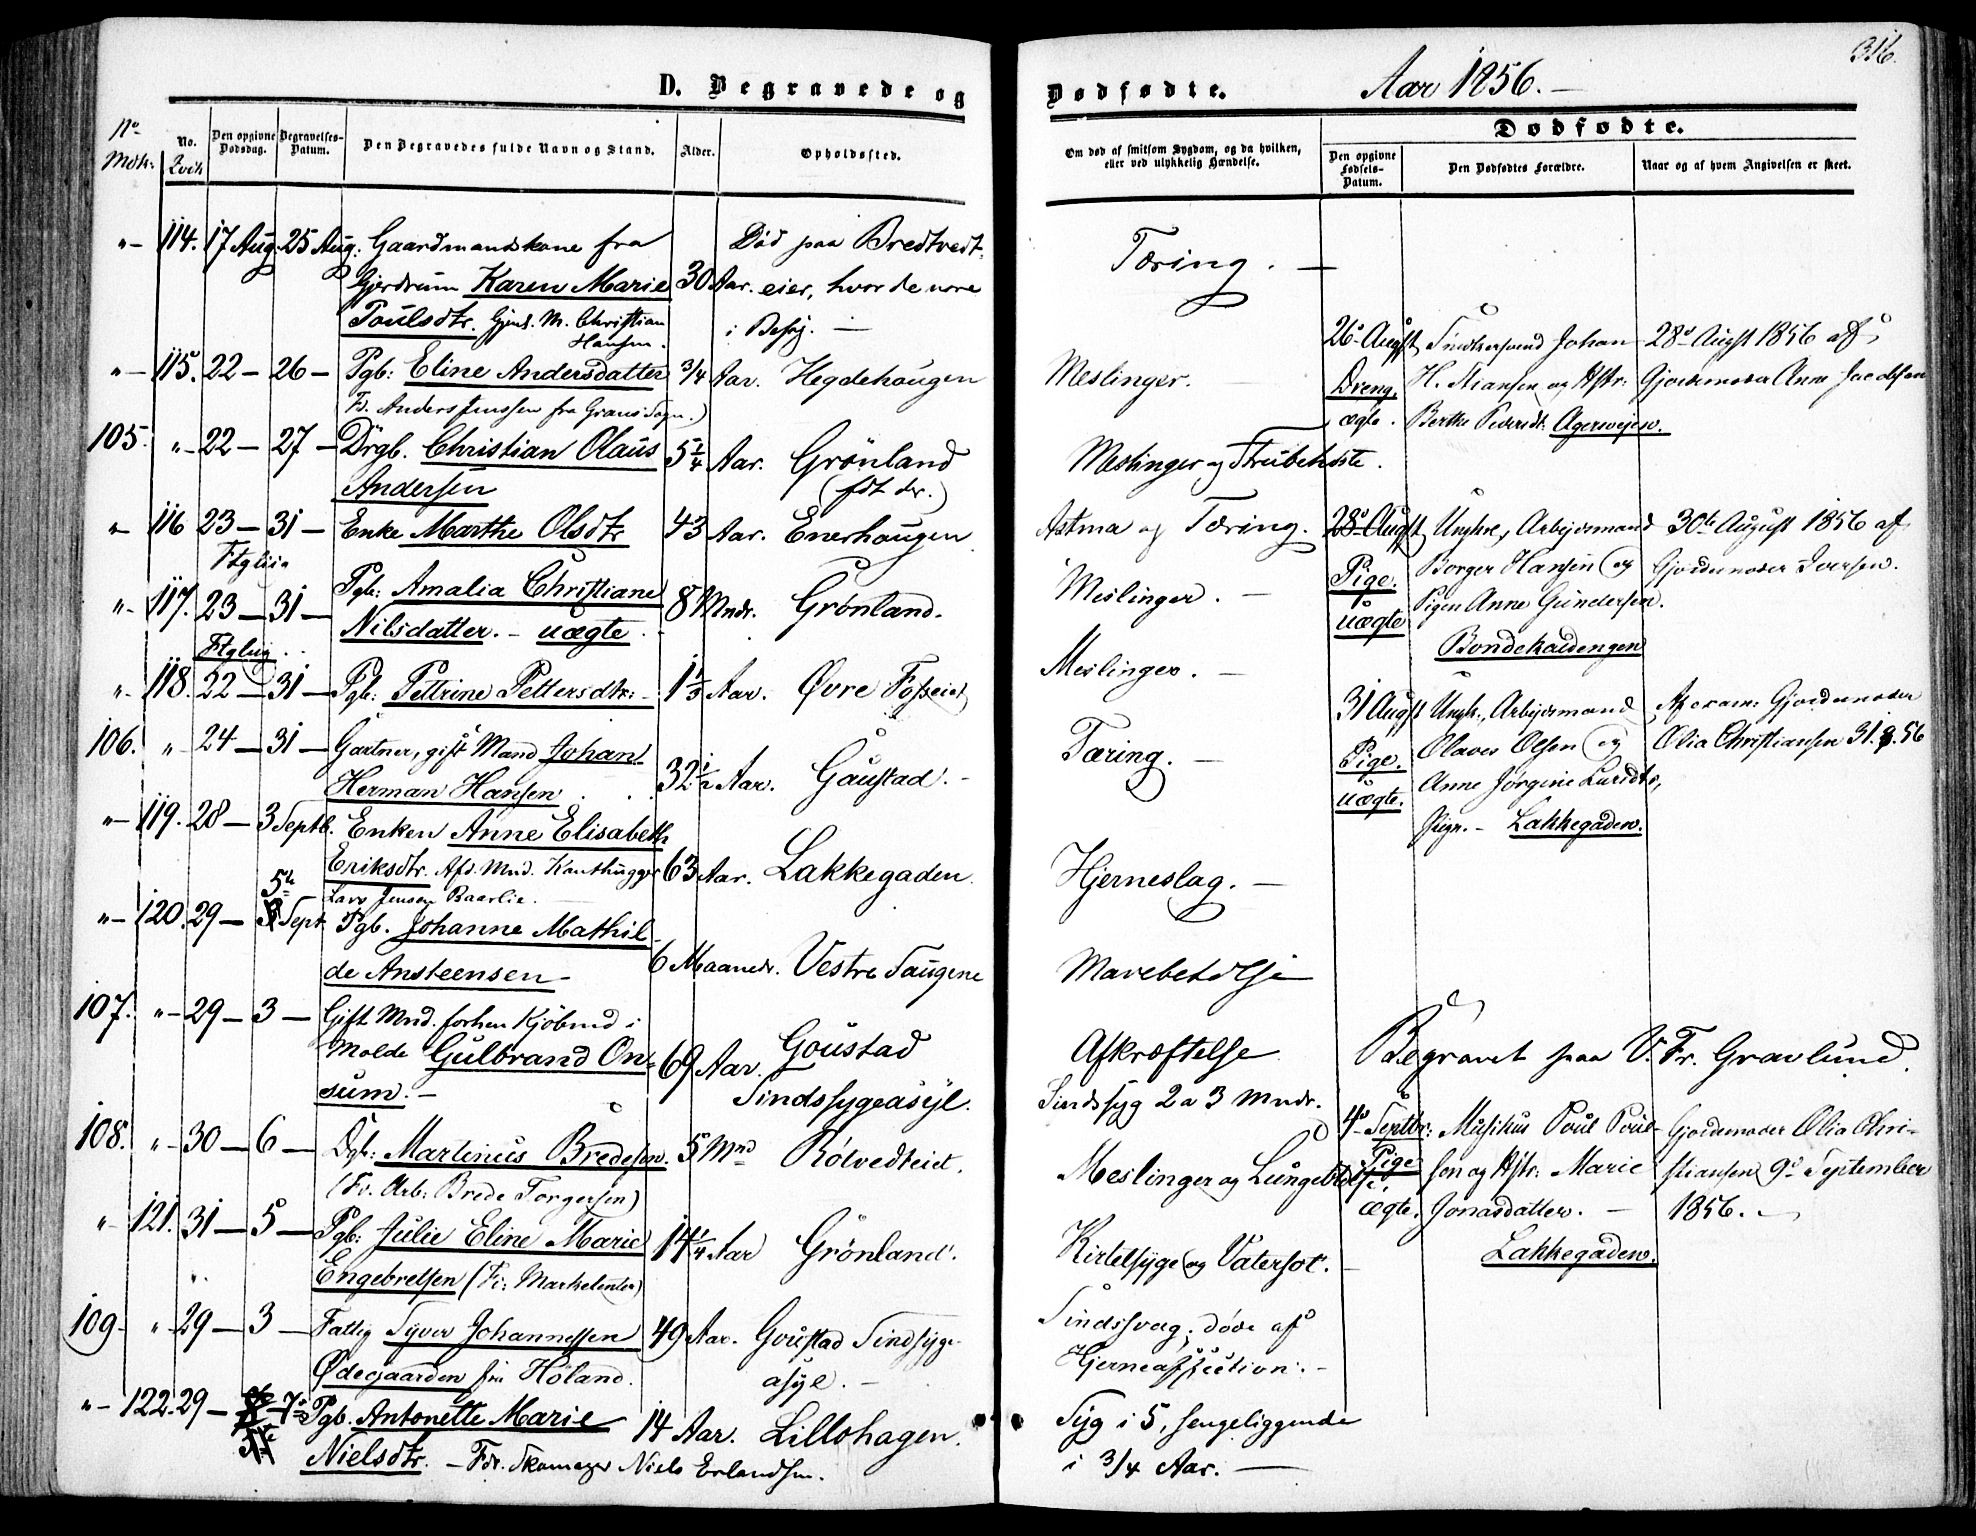 D. Begravede og
No.
Mdk.
No.
Qvik.
Den opgivne Dødsdag.
Begravelses-Datum.
Den Begravedes fulde Navn og Stand.
Alder.
Opholdssted.
"- 114. 17 Aug. 25 Aug. Gaardmandskone fra Død paa Bredtvedt-
Gjerdrum Karen Marie 30 Aar. eier, hvor de vare
Poulsdtr. Gjmd. M. Christian i Besøg. —
Hansen.
"- 115. 22 — 26 — Pgb: Eline Andersdatter 3/4 Aar. Hegdehougen
F. Anders Jenssen fra Grans Sogn.)
105. "- 22 — 27 — Drgb. Christian Olaus 5 1/4 Aar. Grønland
Andersen (fdt der.)
" 116 23 — 31 — Enke Marthe Olsdtr 43 Aar. Enerhougen
Ftglig
"- 117. 23 — 31 — Pgb: Amalia Christiane 8 Mndr. Grønland.
Nilsdatter. — uægte.
Ftglig
"- 118. 22 — 31 — Pgb: Pettrine Pettersdtr: 1 1/3 Aar. Øvre Fosseiet
106. " 24 — 31 — Gartner, gift Mand Johan
Herman Hansen 32 1/2 Aar. Gaustad. -
"- 119. 28 — 3 Septb. Enken Anne Elisabeth
Eriksdtr. Afd. Mnd. Kanthugger 63 Aar. Lakkegaden.
Lars Jensen Baarlie.
"- 120. 29 — 5te Sept. Pgb. Johanne Mathil-
de Ansteensen 6 Maaneder. Vestre Saugene
107. "- 29 — 3 — Gift Mnd. forhen Kjøbmd i
Molde Gulbrand On- 69 Aar. Goustad
sum. — Sindssygeasyl.
108. "- 30 — 6 — Dgb: Martinus Bredesen. 5 Mnd Rølvedteiet.
(Fr. Arb: Brede Torgersen)
"- 121. 31 — 5 — Pgb: Julie Eline Marie 14 1/4 Aar Grønland.
Engebretsen (Fr: Markelenter)
109 " 29 — 3 — Fattig Syver Johannessen 49 Aar. Goustad Sindsyge-
Ødegaarden fra Høland. asyl. —
"- 122. 29 — 7de Pgb. Antonette Marie 14 Aar. Lillohagen.
Nielsdtr. — Fdr. Skomager Niels Erlandsen.
316.
Dødfødte. Aar 1856. —
Om død af smitsom Sygdom, og da hvilken, eller ved ulykkelig Hændelse.
Dødfødte.
Den opgivne Fødsels-Datum.
Den Dødfødtes Forældre.
Naar og af hvem Angivelsen er skeet.
Tæring. —
Meslinger.
Meslinger og Strubehoste.
Astma og Tæring.
Meslinger. —
Meslinger. —
Tæring. —
Hjerneslag. —
Mavebetølse
Afkræftelse
Sindssyg 2 a 3 Mndr.
Meslinger og Lungebetølse
Kirtelsyge og Vatersot. —
Sindssvag; døde af
Hjerneaffection. -
Syg i 5, sengeliggende
i 3/4 Aar. —
26 Augst Johan 28 Augst 1856 af
Dreng, H. Stiansen og Hstr: Gjordemoder Anne Jacobsen
ægte. Berthe Pedersdt. Agersveien.
28 Augst Ungkr, Arbeidsmand 30te August 1856 af
Pige. Borger Hansen og Gjordemoder Iversen.
uægte Pigen Anne Gundersen.
Bondekaldengen
31 Augst Ungk., Arbeidsmand Af exam: Gjordemoder
Pige. Olaves Olsen og Olia Christiansen 31.8.56
uægte. Anne Jørgine Larsdtr,
Pigen. — Lakkegaden.
Begravet paa V. Fr. Gravlund.
4 Septbr: Musikus Poul Poul- Gjordemoder Olia Chri-
Pige sen og Hstr: Marie stiansen 9 September
ægte. Jonasdatter. — 1856. —
Lakkegaden.